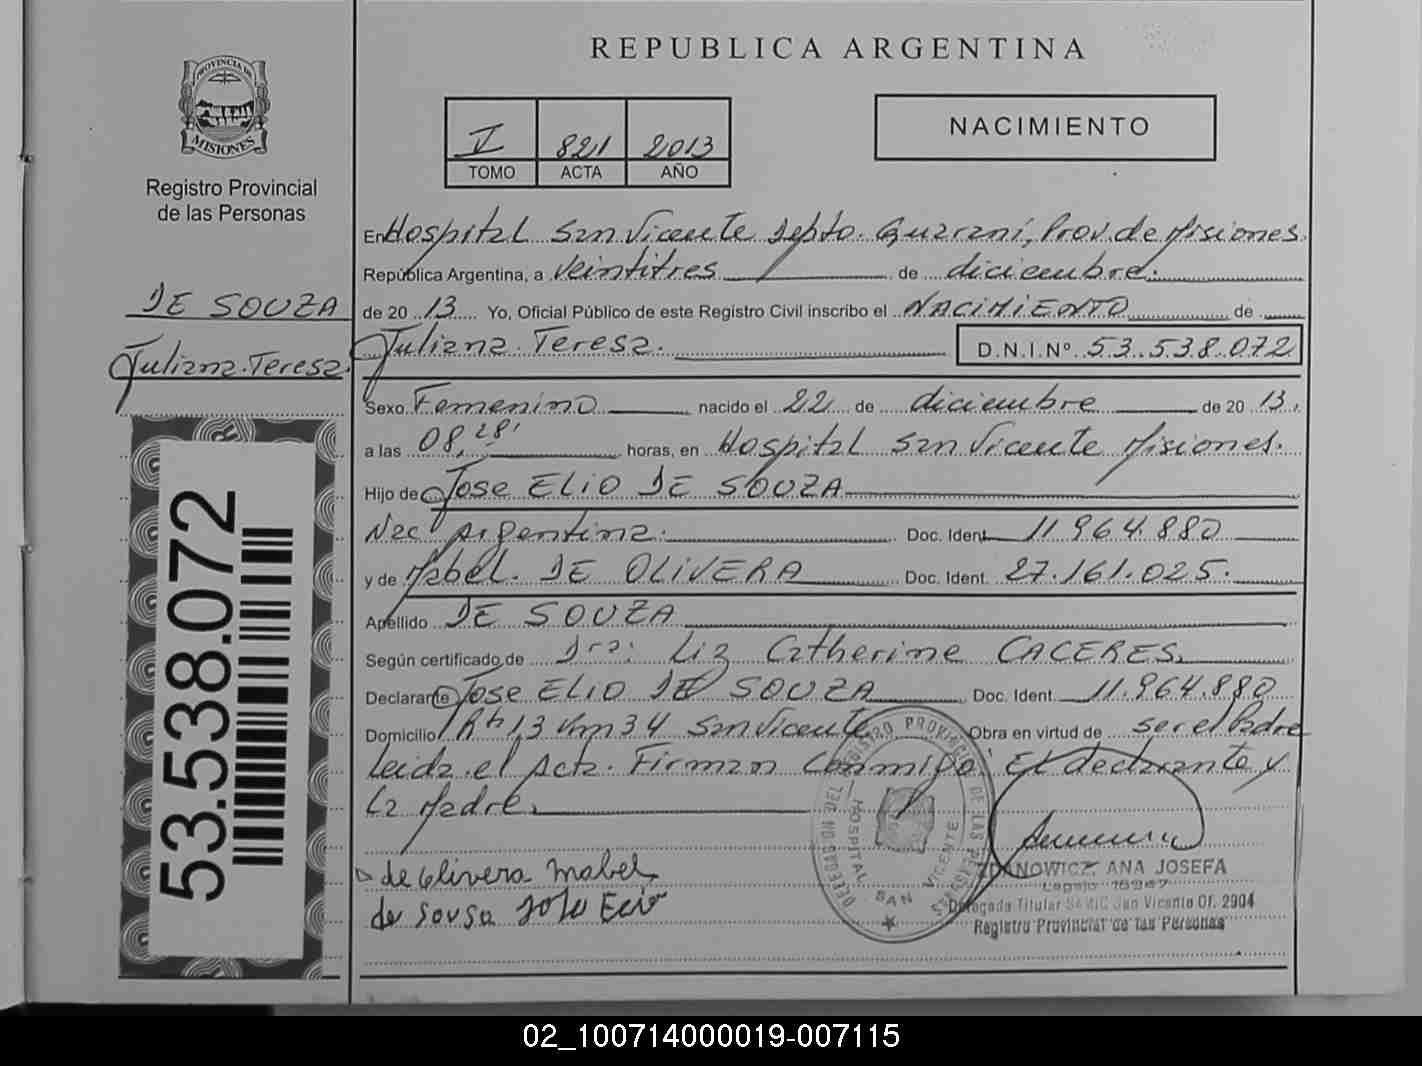 REPUBLICA ARGENTINA
PROVINCIA DE
MISIONES
Registro Provincial
de las Personas
V 821 2013
TOMO ACTA AÑO
NACIMIENTO
DE SOUZA
Juliana Teresa
53.538.072
En Hospital San Vicente Depto. Guarani, Prov. de Misiones
República Argentina, a veintitres de diciembre
de 20 13 Yo, Oficial Público de este Registro Civil inscribo el NACIMIENTO de
Juliana Teresa. D.N.I.Nº 53.538.072
Sexo Femenino nacido el 22 de diciembre de 20 13
a las 08,28' horas, en Hospital San Vicente Misiones.
Hijo de Jose ELIO DE SOUZA
Nac. Argentina. Doc. Ident. 11.964.880
y de Mabel. DE OLIVERA Doc. Ident. 27.161.025.
Apellido DE SOUZA
Según certificado de Dra: Liz Catherine CACERES.
Declarante Jose ELIO DE SOUZA Doc. Ident 11.964.880
Domicilio Rta 13 Km 34 San Vicente Obra en virtud de ser el Padre
Leida el Acta. Firman Conmigo El declarante y
La Madre.
de Olivera Mabel
de Sousa
ANA JOSEFA
Delegada Titular San Vicente Of. 2904
Registro Provincial de las Personas
HOSPITAL SAN VICENTE
02_100714000019-007115